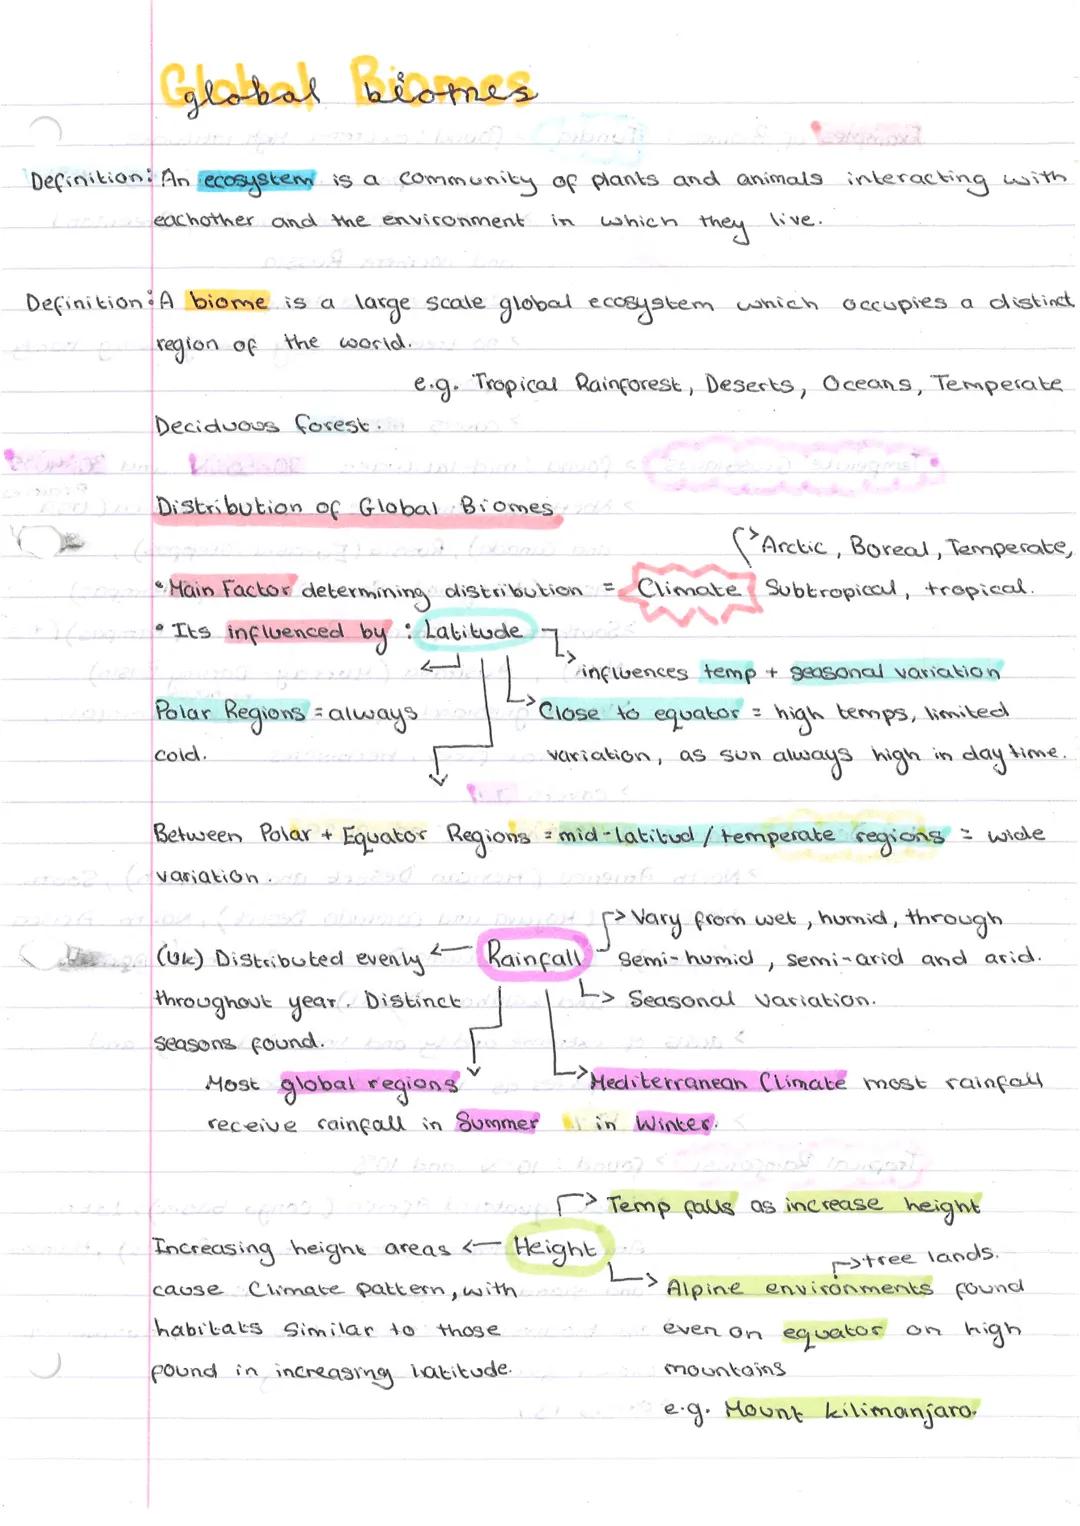 Global Biomes
global biomes
Definition: An ecosystem is a community of plants and animals interacting with
eachother and the environment in which they live.
Definition: A biome is a large scale global ecosystem which occupies a distinct
region of the world.
e.g. Tropical Rainforest, Deserts, Oceans, Temperate
Deciduous forest.
Distribution of Global Biomes
Arctic, Boreal, Temperate,
• Main Factor determining distribution = Climate Subtropical, tropical.
• Its influenced by : Latitude
influences temp + seasonal variation
Polar Regions = always
cold.
Close to equator = high temps, limited
variation, as sun always high in day time.
Between Polar + Equator Regions = mid-latitud / temperate regions = wide
variation.
Vary from wet, humid, through
(UK) Distributed evenly ← Rainfall semi-humid, semi-arid and arid.
throughout year. Distinct
seasons found.
Seasonal variation.
Most global regions
receive rainfall in Summer
Mediterranean Climate most rainfall
in Winter.
Temp falls as increase height
Increasing height areas ← Height
cause Climate pattern, with
habitats similar to those
found in increasing latitude.
tree lands.
Alpine environments found
even on equator on high
mountains
e.g. Mount kilimanjaro.